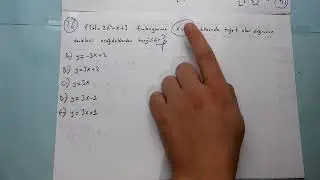 76) f(x)= 2x²-x+3 fonksiyonuna x noktasında teğet olan doğrunun
denklemi aşağıdakilerden hangisidir?
A) y=-3x+2
B) y=3x+2
C) y=3x
D) y=3x-1
E) y=3x+1